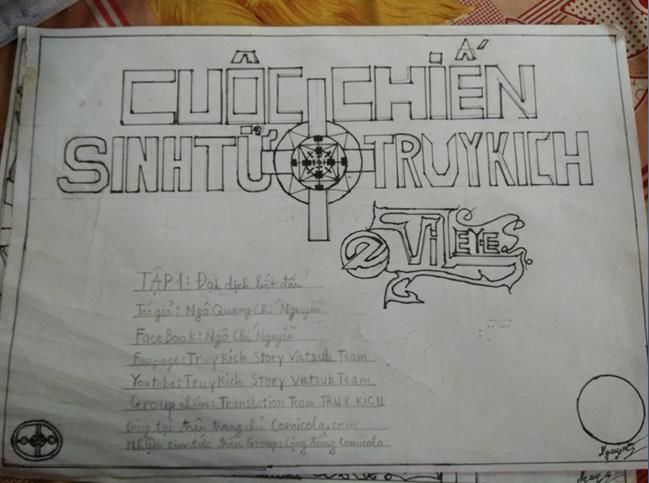 CUỘC CHIẾN
SINH TỬ TRUY KICH
EViL EYES
TẬP 1: Đại dịch bắt đầu
Tác giả: Ngô Quang Chí Nguyễn
FaceBook: Ngô Chí Nguyễn
Fanpage: Truy Kich Story Vietsub Team
Youtube: Truy Kich Story Vietsub Team
Group nhóm: Translation Team TRUY KICH
Đăng tại trên trang chủ Comicola.com
Nhận tin tức trên Group: Cộng đồng Comicola